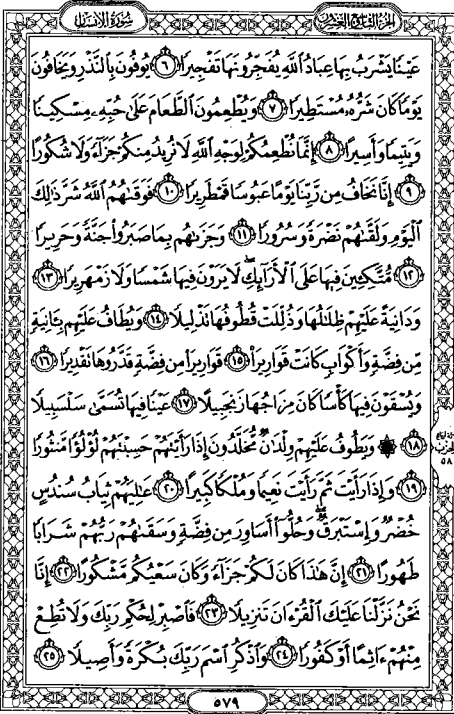 سورة الإنسان الجزء التاسع والعشرون
عَيْنًا يَشْرَبُ بِهَا عِبَادُ ٱللَّهِ يُفَجِّرُونَهَا تَفْجِيرًا ٦ يُوفُونَ بِٱلنَّذْرِ وَيَخَافُونَ
يَوْمًا كَانَ شَرُّهُۥ مُسْتَطِيرًا ٧ وَيُطْعِمُونَ ٱلطَّعَامَ عَلَىٰ حُبِّهِۦ مِسْكِينًا
وَيَتِيمًا وَأَسِيرًا ٨ إِنَّمَا نُطْعِمُكُمْ لِوَجْهِ ٱللَّهِ لَا نُرِيدُ مِنكُمْ جَزَآءً وَلَا شُكُورًا
٩ إِنَّا نَخَافُ مِن رَّبِّنَا يَوْمًا عَبُوسًا قَمْطَرِيرًا ١٠ فَوَقَىٰهُمُ ٱللَّهُ شَرَّ ذَٰلِكَ
ٱلْيَوْمِ وَلَقَّىٰهُمْ نَضْرَةً وَسُرُورًا ١١ وَجَزَىٰهُم بِمَا صَبَرُوا۟ جَنَّةً وَحَرِيرًا
١٢ مُّتَّكِـِٔينَ فِيهَا عَلَى ٱلْأَرَآئِكِ ۖ لَا يَرَوْنَ فِيهَا شَمْسًا وَلَا زَمْهَرِيرًا ١٣
وَدَانِيَةً عَلَيْهِمْ ظِلَٰلُهَا وَذُلِّلَتْ قُطُوفُهَا تَذْلِيلًا ١٤ وَيُطَافُ عَلَيْهِم بِـَٔانِيَةٍ
مِّن فِضَّةٍ وَأَكْوَابٍ كَانَتْ قَوَارِيرَا۠ ١٥ قَوَارِيرَا۟ مِن فِضَّةٍ قَدَّرُوهَا تَقْدِيرًا ١٦
وَيُسْقَوْنَ فِيهَا كَأْسًا كَانَ مِزَاجُهَا زَنجَبِيلًا ١٧ عَيْنًا فِيهَا تُسَمَّىٰ سَلْسَبِيلًا
١٨ ۞ وَيَطُوفُ عَلَيْهِمْ وِلْدَٰنٌ مُّخَلَّدُونَ إِذَا رَأَيْتَهُمْ حَسِبْتَهُمْ لُؤْلُؤًا مَّنثُورًا
٥٨
١٩ وَإِذَا رَأَيْتَ ثَمَّ رَأَيْتَ نَعِيمًا وَمُلْكًا كَبِيرًا ٢٠ عَٰلِيَهُمْ ثِيَابُ سُندُسٍ
خُضْرٌ وَإِسْتَبْرَقٌ ۖ وَحُلُّوٓا۟ أَسَاوِرَ مِن فِضَّةٍ وَسَقَىٰهُمْ رَبُّهُمْ شَرَابًا
طَهُورًا ٢١ إِنَّ هَٰذَا كَانَ لَكُمْ جَزَآءً وَكَانَ سَعْيُكُم مَّشْكُورًا ٢٢ إِنَّا
نَحْنُ نَزَّلْنَا عَلَيْكَ ٱلْقُرْءَانَ تَنزِيلًا ٢٣ فَٱصْبِرْ لِحُكْمِ رَبِّكَ وَلَا تُطِعْ
مِنْهُمْ ءَاثِمًا أَوْ كَفُورًا ٢٤ وَٱذْكُرِ ٱسْمَ رَبِّكَ بُكْرَةً وَأَصِيلًا ٢٥
٥٧٩